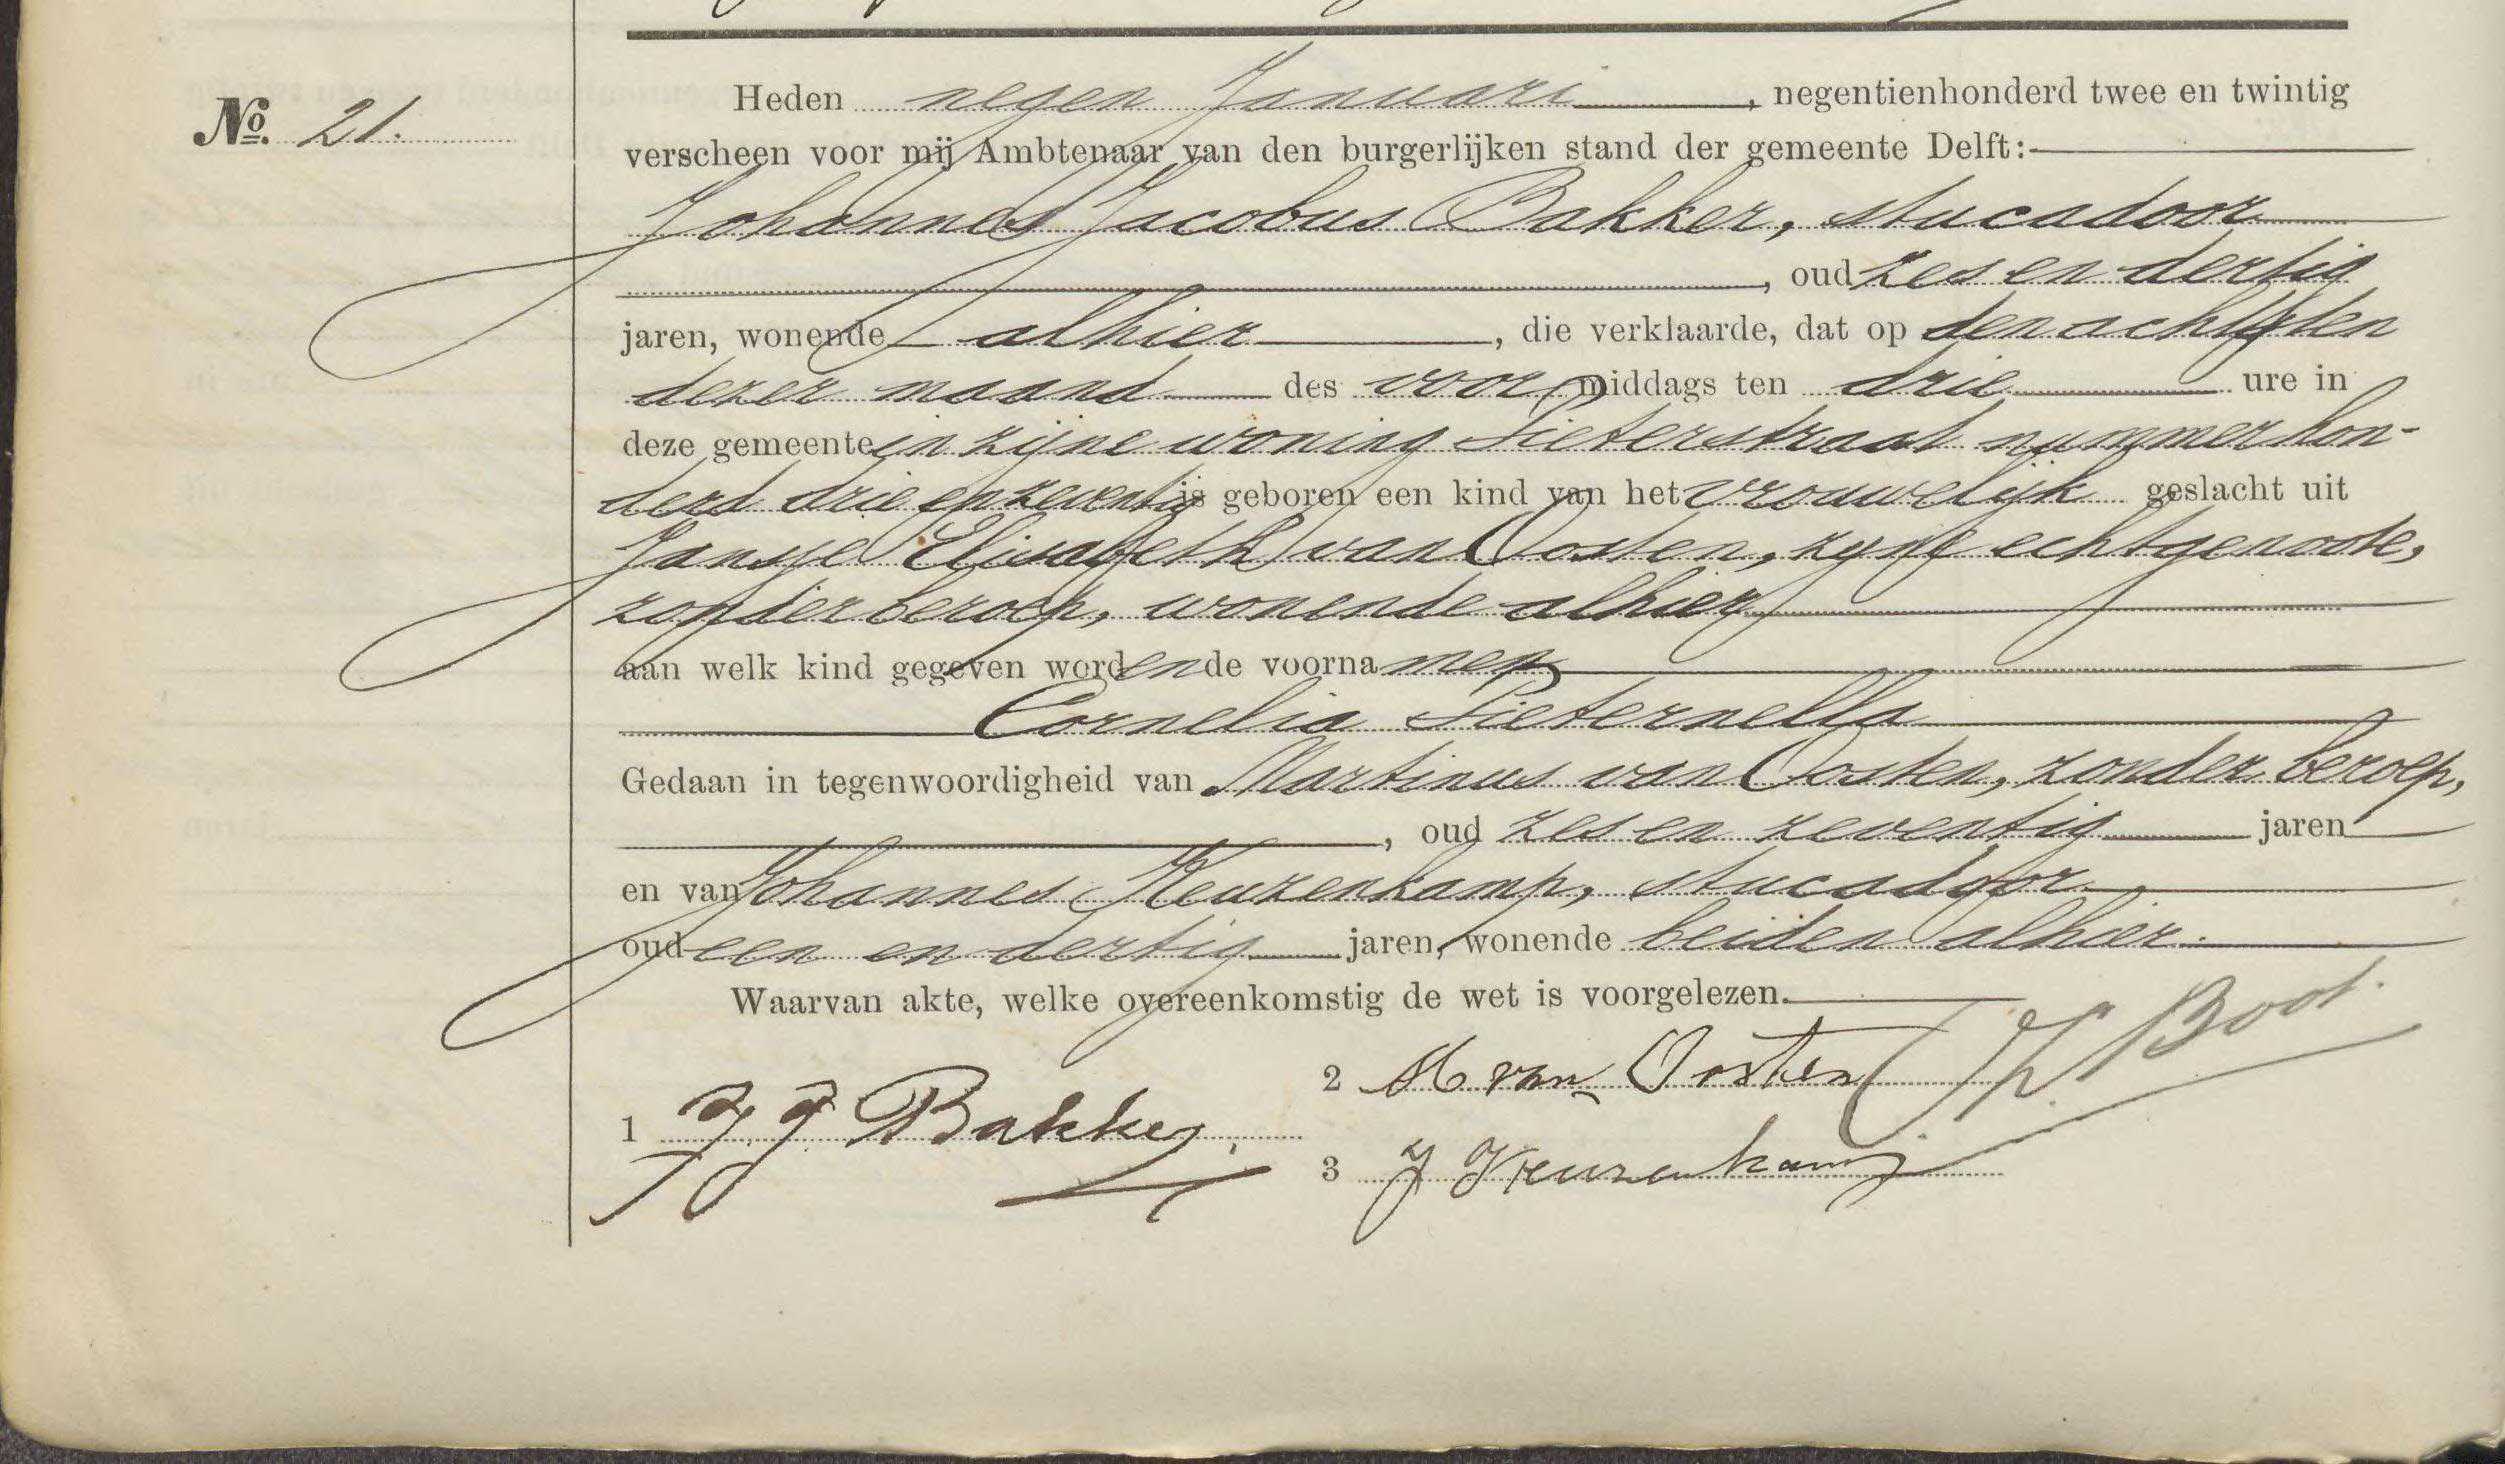 No. 21.
Heden negen Januari, negentienhonderd twee en twintig
verscheen voor mij Ambtenaar van den burgerlijken stand der gemeente Delft:
Johannes Jacobus Bakker, stucadoor
, oud zes en dertig
jaren, wonende alhier, die verklaarde, dat op den achtsten
dezer maand des voormiddags ten drie ure in
deze gemeente in zijne woning Pieterstraat nummer hon-
derd drie en zeventig is geboren een kind van het vrouwelijk geslacht uit
Jansje Elisabeth van Oosten, zijne echtgenoote,
zonder beroep, wonende alhier
aan welk kind gegeven worden de voornamen
Cornelia Pieternella
Gedaan in tegenwoordigheid van Martinus van Oosten, zonder beroep,
, oud zes en zeventig jaren
en van Johannes Keuzenkamp, stucadoor
oud een en dertig jaren, wonende beiden alhier.
Waarvan akte, welke overeenkomstig de wet is voorgelezen.
Boot.
2 M van Oosten
1 J J Bakker
3 J Keuzenkamp